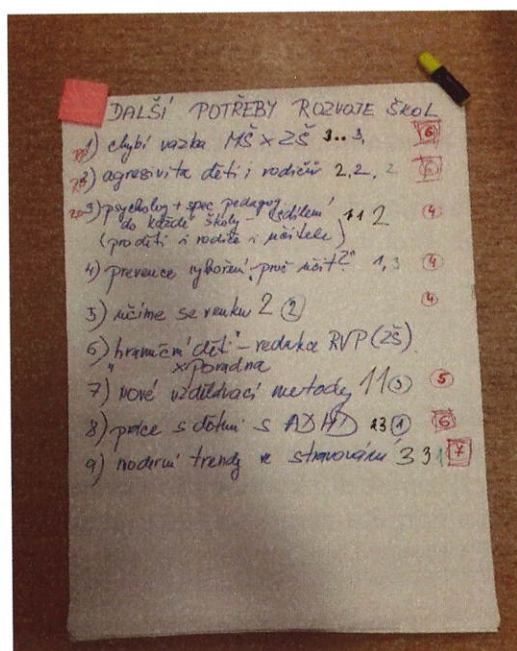 DALŠÍ POTŘEBY ROZVOJE ŠKOL
1) chybí vazba MŠ x ZŠ 3..3, 6
2) agresivita dětí i rodičů 2,2,2 6
3) psycholog + spec pedagog
do každé školy - sdílení 11 2 4
(pro děti i rodiče i učitele)
4) prevence vyhoření, proč učit? 1,3 4
5) učíme se venku 2 2 4
6) "hraniční děti" - redukce RVP (ZŠ)
x Poradna
7) nové vzdělávací metody 11 3 5
8) práce s dětmi s ADHD 13 1 6
9) moderní trendy ve stravování 3 3 1 7